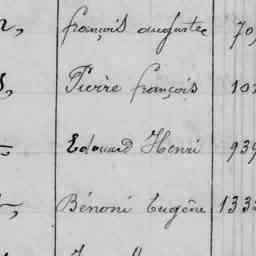 françois auguste 70
Pierre françois 10
Edouard Henri 939
Bénoni Eugène 133